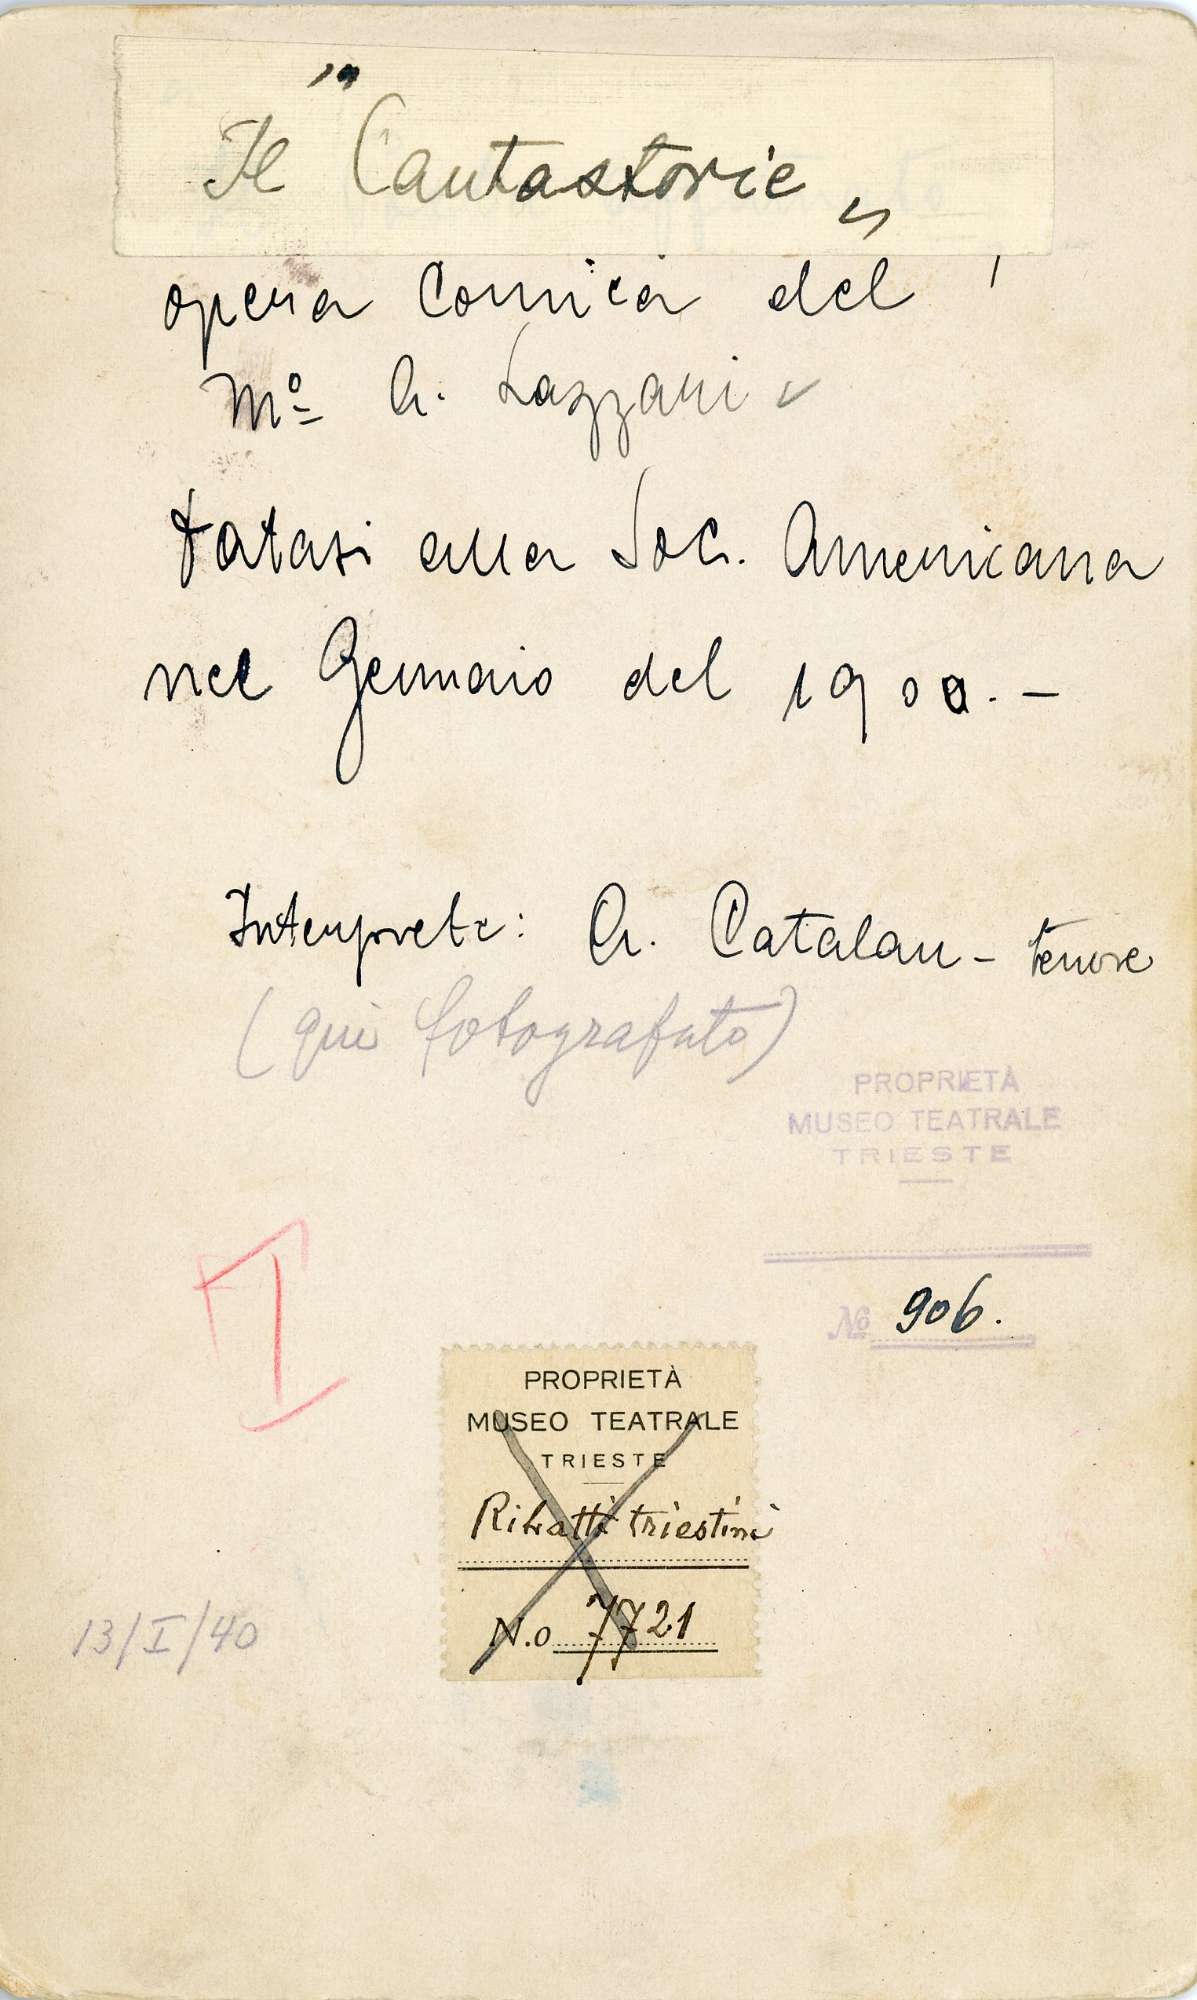 Il "Cantastorie"
opera comica del
Mº A. Lazzari
datasi alla Soc. Americana
nel Gennaio del 1900. -
Interprete: A. Catalan - tenore
(qui fotografato)
PROPRIETÀ
MUSEO TEATRALE
TRIESTE
№ 906.
I
PROPRIETÀ
MUSEO TEATRALE
TRIESTE
Ritratti triestini
N.o 7721
13/I/40